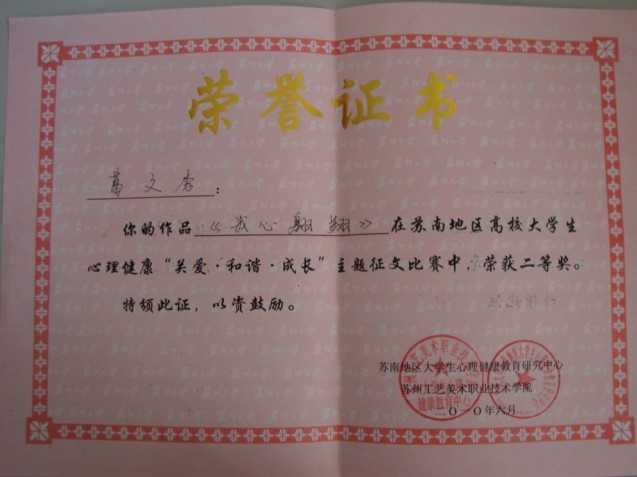 荣誉证书
葛文秀：
你的作品《我心翱翔》在苏南地区高校大学生
心理健康“关爱·和谐·成长”主题征文比赛中，荣获二等奖。
特颁此证，以资鼓励。
苏南地区大学生心理健康教育研究中心
苏州工艺美术职业技术学院
二〇一〇年六月